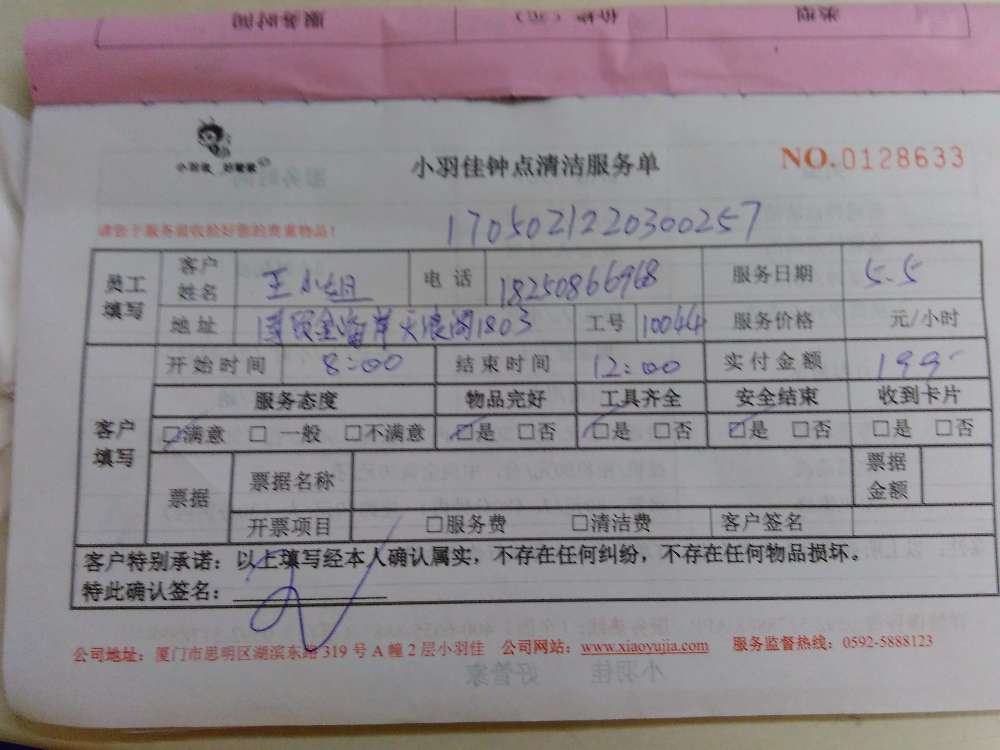 服务时间 价格（元） 类型
小羽佳 好管家
小羽佳钟点清洁服务单
NO.0128633
1705021220300257
请您于服务前收拾好您的贵重物品！
员工填写 客户姓名 王小姐 电话 18250866968 服务日期 5.5
地址 海岸天浪阁1803 工号 10044 服务价格 元/小时
客户填写 开始时间 8:00 结束时间 12:00 实付金额 199
服务态度 物品完好 工具齐全 安全结束 收到卡片
☑满意 □一般 □不满意 ☑是 □否 ☑是 □否 ☑是 □否 □是 □否
票据 票据名称 票据金额
开票项目 □服务费 □清洁费 客户签名
客户特别承诺：以上填写经本人确认属实，不存在任何纠纷，不存在任何物品损坏。
特此确认签名：
公司地址：厦门市思明区湖滨东路 319 号 A 幢 2 层小羽佳 公司网站：www.xiaoyujia.com 服务监督热线：0592-5888123
小羽佳 好管家